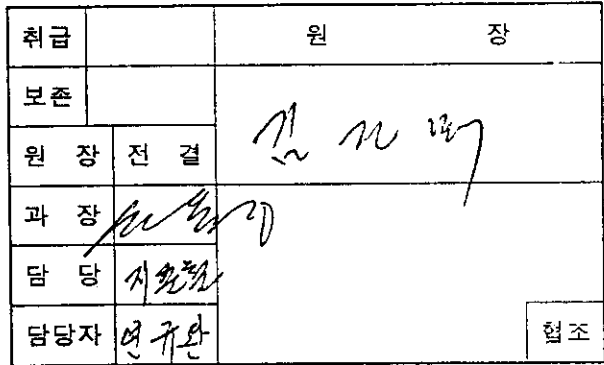 취급 원 장
보존
원 장 전 결
과 장
담 당
담당자 연규완
협조